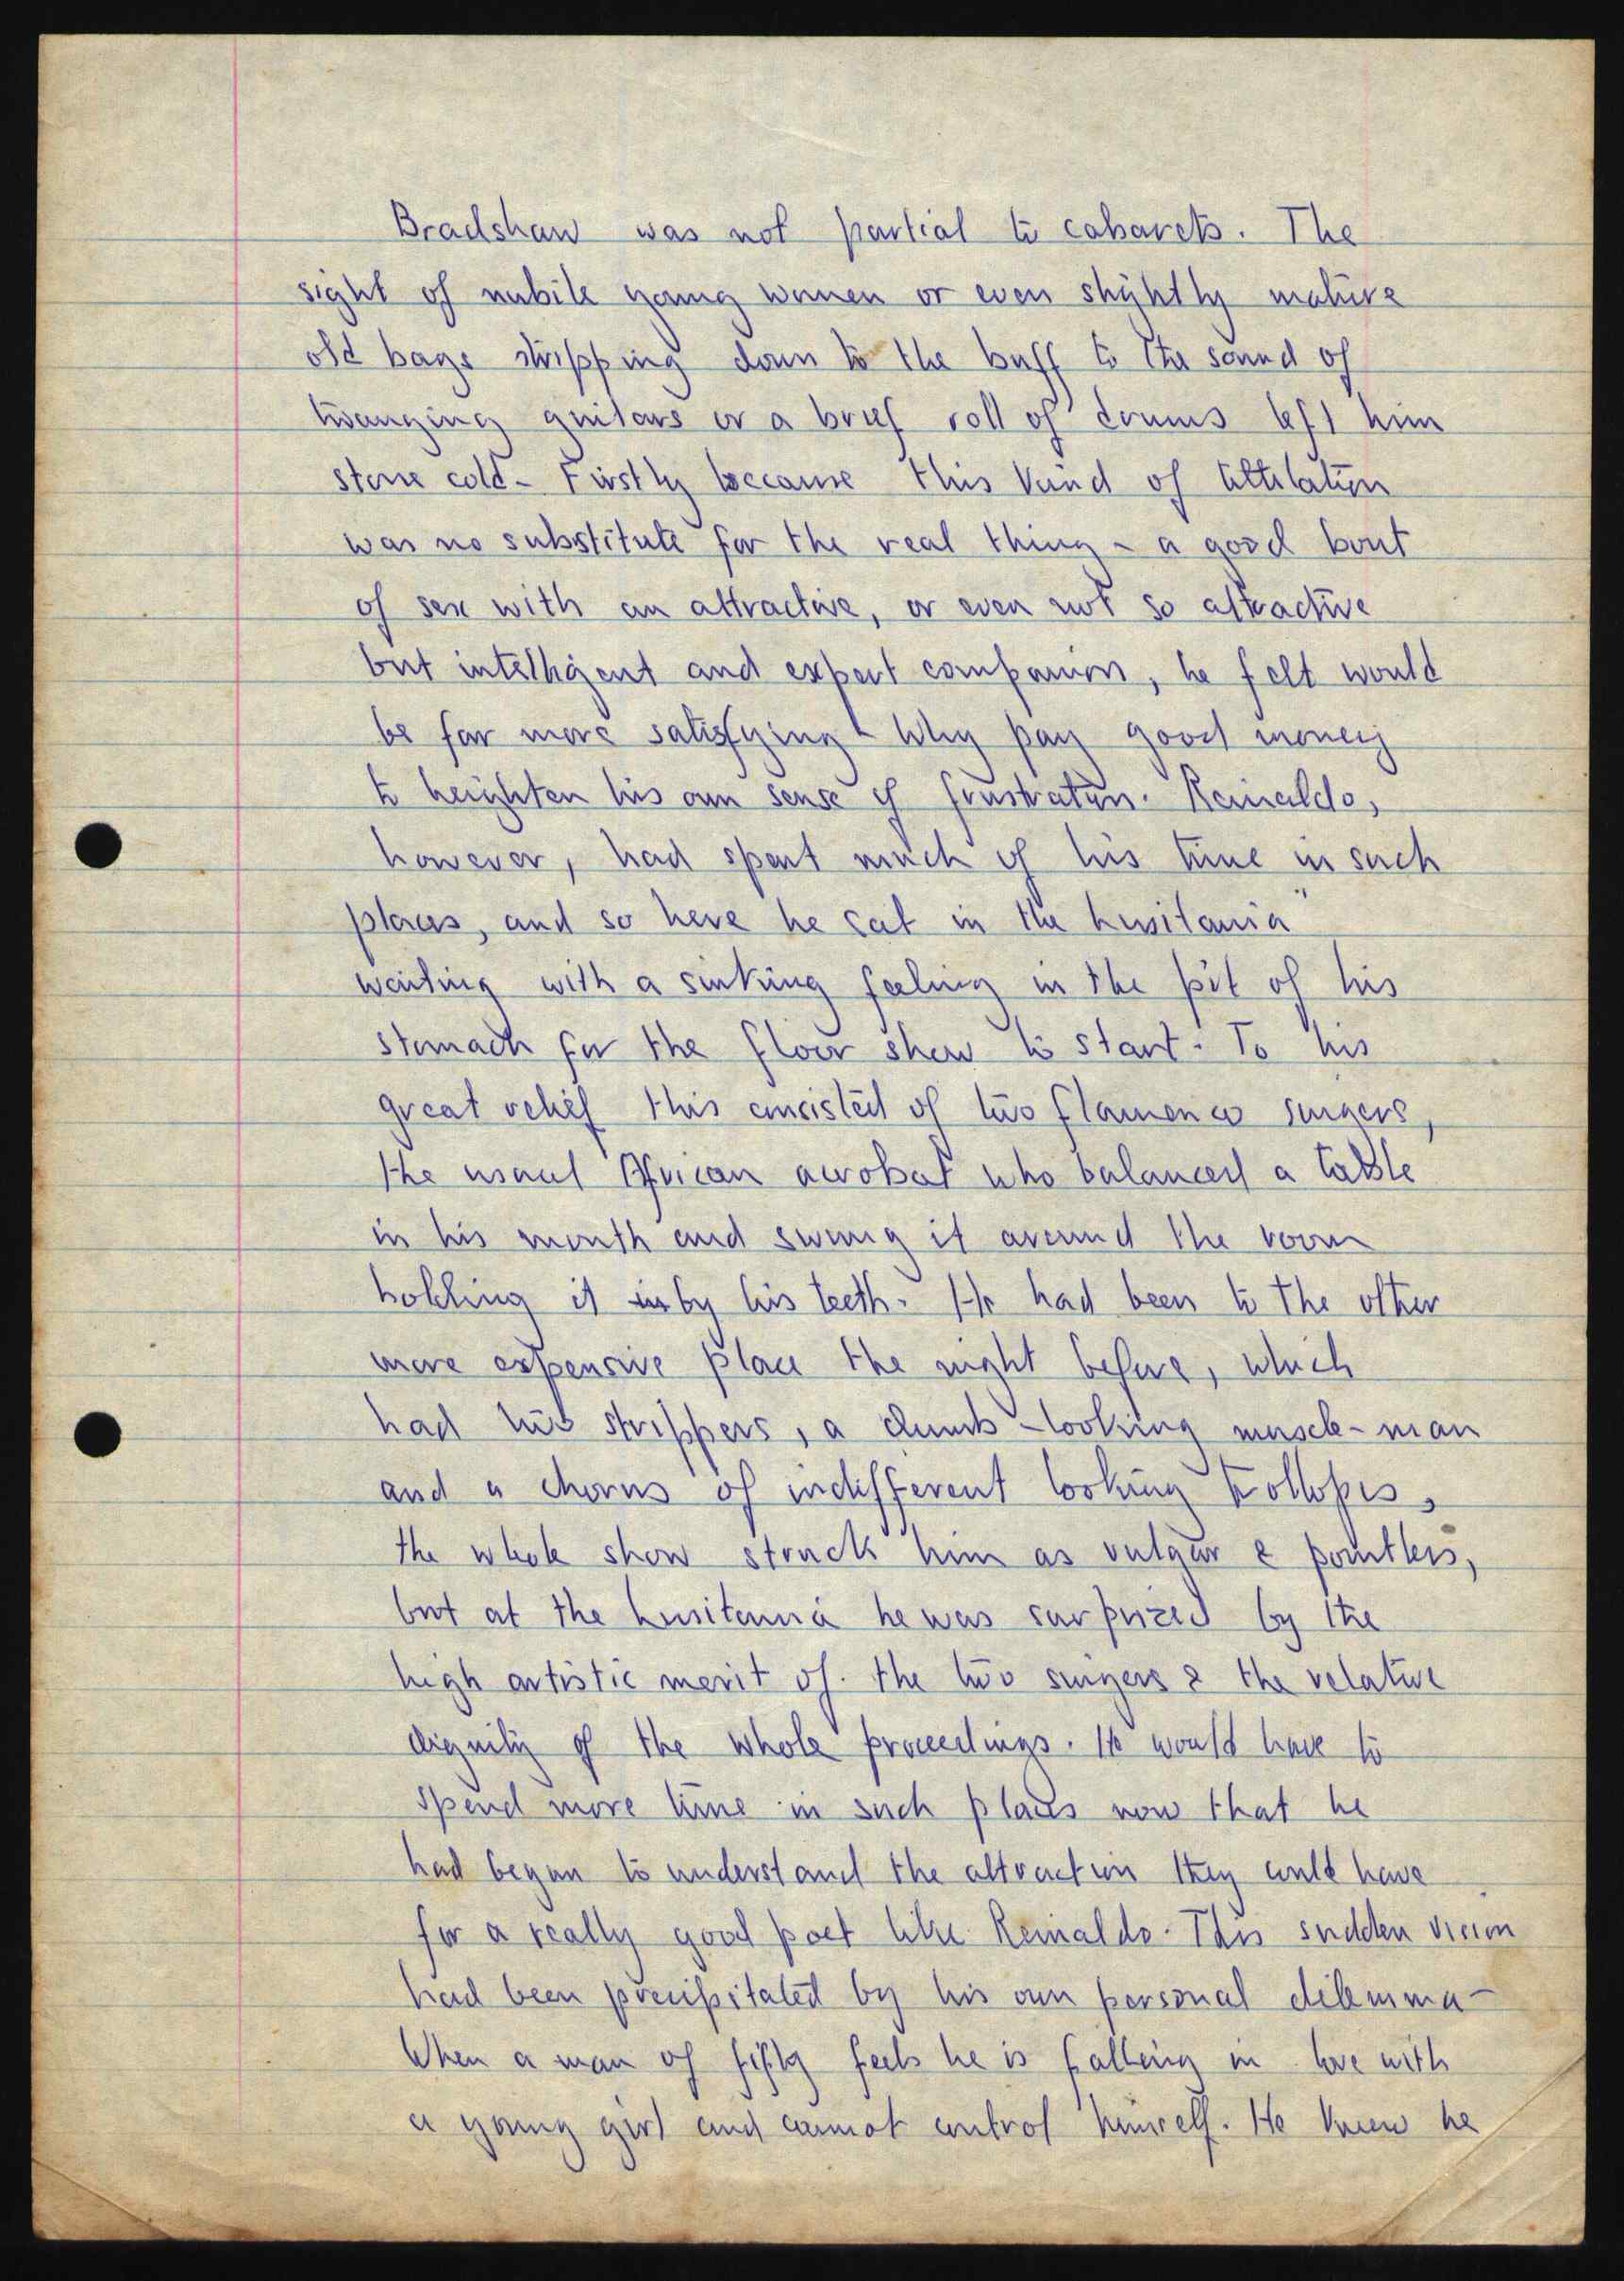 Bradshaw was not partial to cabarets. The
sight of nubile young women or even slightly mature
old bags stripping down to the buff to the sound of
twanging guitars or a brief roll of drums left him
stone cold - Firstly because this kind of titilation
was no substitute for the real thing - a good bout
of sex with an attractive, or even not so attractive
but intelligent and expert companion, he felt would
be far more satisfying - Why pay good money
to heighten his own sense of frustration. Reinaldo,
however, had spent much of his time in such
places, and so here he sat in the Lusitania"
waiting with a sinking feeling in the pit of his
stomach for the floor show to start. To his
great relief this consisted of two flamenco singers,
the usual African acrobat who balanced a table
in his mouth and swung it around the room
holding it in by his teeth. He had been to the other
more expensive place the night before, which
had two strippers, a dumb-looking muscle-man
and a chorus of indifferent looking trollopes,
the whole show struck him as vulgar & pointless,
but at the Lusitania he was surprized by the
high artistic merit of. the two singers & the relative
dignity of the whole proceedings. He would have to
spend more time in such places now that he
had began to understand the attraction they could have
for a really good poet like Reinaldo. This sudden vision
had been precipitated by his own personal dilemma -
When a man of fifty feels he is falling in love with
a young girl and cannot control himself. He knew he